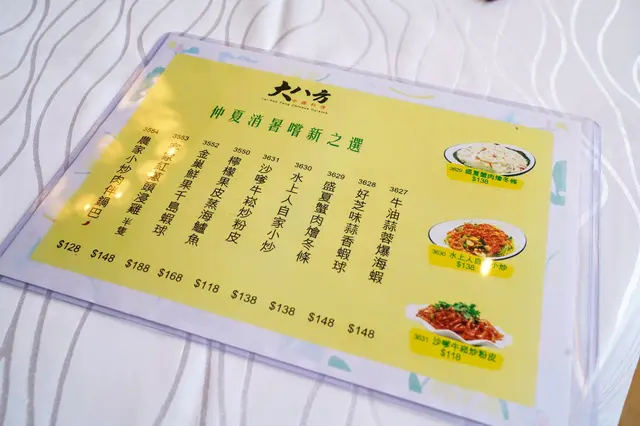 大八方
仲夏消暑嚐新之選
3627 牛油蒜蓉爆海蝦 $148
3628 好芝味蒜香蝦球 $148
3629 盛夏蟹肉燴冬條 $138
3630 水上人自家小炒 $138
3631 沙嗲牛崧炒粉皮 $118
3550 檸檬果皮蒸海鱸魚 $168
3552 金巢鮮果千島蝦球 $188
3553 紅葱頭浸雞 半隻 $148
3554 農家小炒肉伴鍋巴 $128
3629 盛夏蟹肉燴冬條
$138
3630 水上人自家小炒
$138
3631 沙嗲牛崧炒粉皮
$118